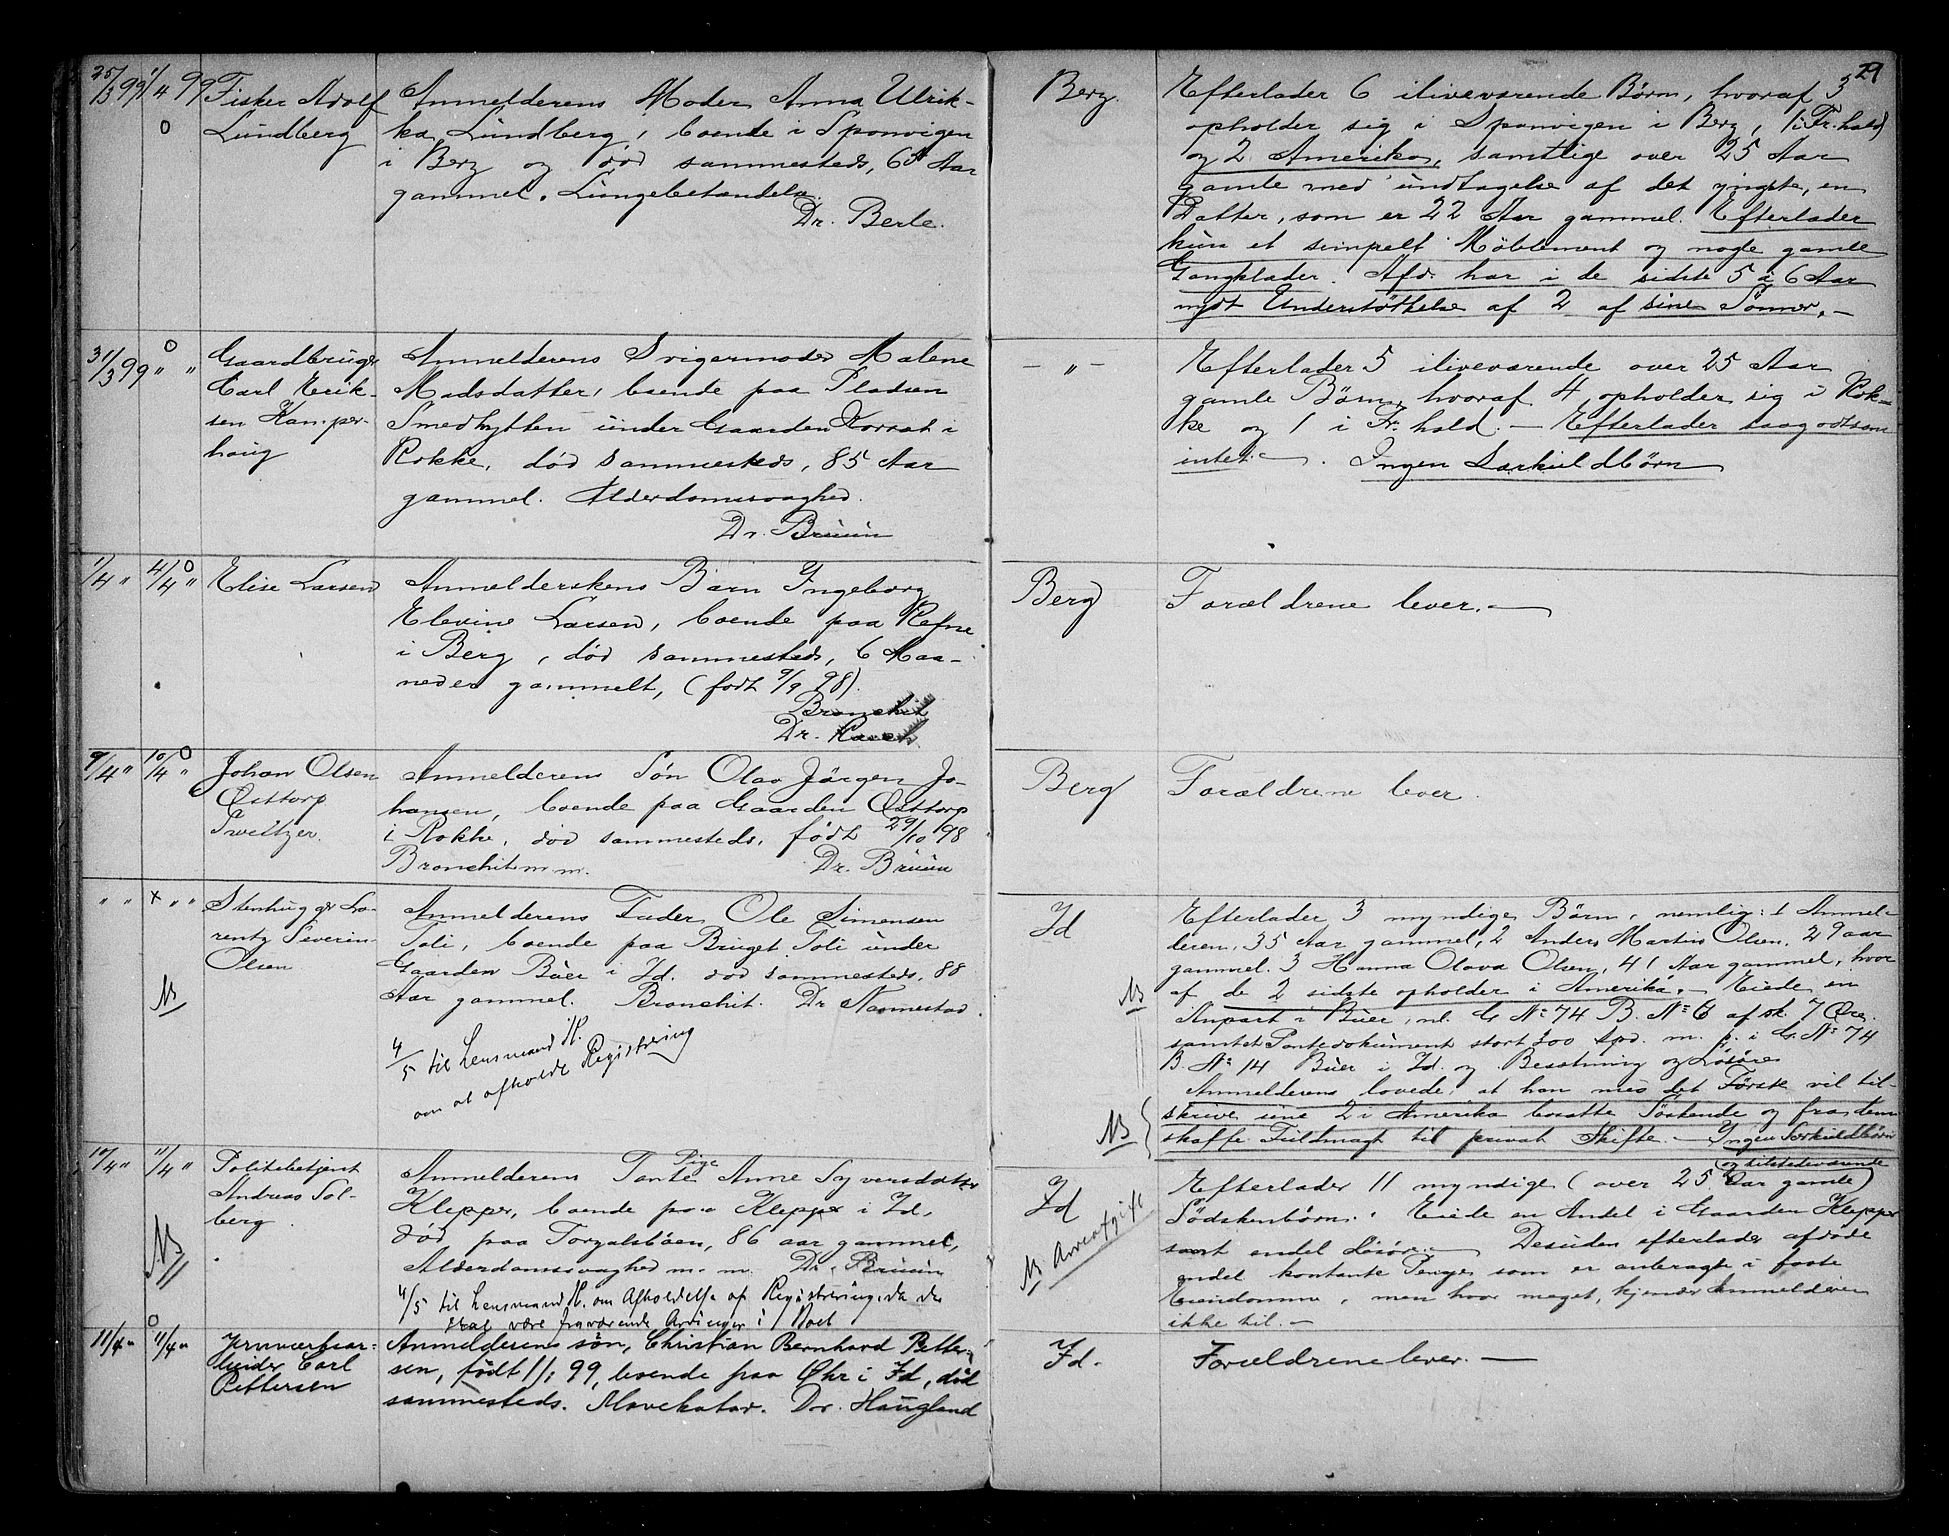 29
25/3 99 1/4 99 Fisker Adolf
o Lundberg
Anmelderens Moder Anna Ulrik-
ka Lundberg, boende i Sponvigen
i Berg og död sammesteds, 65 Aar
gammel. Lungebetændelse.
Dr. Berle.
Berg.
Efterlader 6 iliveværende Börn, hvoraf 3
opholder sig i Sponvigen i Berg, 1 i Fr.hald
og 2 Amerika, samtlige over 25 Aar
gamle med undtagelse af det yngste, en
Datter, som er 22 Aar gammel. Efterlader
kun et simpelt Möblement og nogle gamle
Gangklæder. Afd. har i de sidste 5 à 6 Aar
nydt Understöttelse af 2 af sine Sönner. —
31/3 99 " " o
Gaardbruger
Carl Erik-
sen Kamper-
haug
Anmelderens Svigermoder Malene
Madsdatter, boende paa Pladsen
Smedhytten under Gaarden Korsæt i
Rokke, död sammesteds, 85 Aar
gammel. Alderdomssvaghed.
Dr. Bruun
— " —
Efterlader 5 iliveværende over 25 Aar
gamle Börn, hvoraf 4 opholder sig i Rok-
ke og 1 i Fr.hald. — Efterlader saagodtsom
intet. — Ingen Særkuldbörn
1/4 " 4/4 " o
Elise Larsen
Anmelderskens Barn Ingeborg
Elevine Larsen, boende paa Refne
i Berg, död sammesteds, 6 Maa-
neder gammelt, (født 9/9 98).
Bronchit
Dr.
Berg
Forældrene lever. —
9/4 " 10/4 " o
Johan Olsen
Østtorp
Sveitzer.
Anmelderens Sön Olav Jörgen Jo-
hansen, boende paa Gaarden Østtorp
i Rokke, död sammesteds, född 29/10 98
Bronchit m. m. Dr. Bruun
Berg
Forældrene lever.
" " x " "
Stenhugger Lo-
rentz Severin
Olsen
NB
Anmelderens Fader Ole Simensen
Toli, boende paa Bruget Toli under
Gaarden Buer i Id. död sammesteds, 88
Aar gammel. Bronchit. Dr Naumestad.
4/5 til Lensmand H.
om at afholde Registrering
Id
NB
NB
Efterlader 3 myndige Börn, nemlig: 1 Anmel-
deren, 35 Aar gammel, 2 Anders Martin Olsen, 29 aar
gammel. 3 Hanna Olava Olsen, 41 Aar gammel, hvor
af de 2 sidste opholder i Amerika. — Eiede en
Anpart i Buer, nl. G. No 74 B. No 6 af sk. 7 Øre.
samt et Pantedokument stort 300 Spd. m. p. i G. No 74
B. No 14 Buer i Id. og Besætning og Lösöre
Anmelderens lovede, at han med det Förste vil til-
skrive sine 2 i Amerika bosatte Söskende og fra dem
skaffe Fuldmagt til privat Skifte. — Ingen Særkuldbörn
10/4 " 11/4 "
Politibetjent
Andreas Sol-
berg.
NB
Pige
Anmelderens Tante Anne Syversdatter
Klepper, boende paa Klepper i Id,
död paa Torgalsböen, 86 aar gammel,
Alderdomssvaghed m. m. Dr. Bruun
4/5 til Lensmand H. om Afholdelse af Registrering, da der
skal være fraværende Arvinger i Boet
Id
NB Arveafgift
og tilstedeværende
Efterlader 11 myndige (over 25 Aar gamle)
Södskenbörn. Eiede en Andel i Gaarden Klepper
samt endel Lösöre. — Desuden efterlader afdöde
endel kontante Penge som er anbragte i faste
Eiendomme, men hvor meget, kjender Anmelderen
ikke til. —
11/4 " o 11/4 "
Jernværksar-
beider Carl
Pettersen
Anmelderens sön, Christian Bernhard Petter-
sen, födt 11/1 99, boende paa Øhr i Id, död
sammesteds. Mavekatar. Dr. Haugland
Id.
Forældrene lever. —